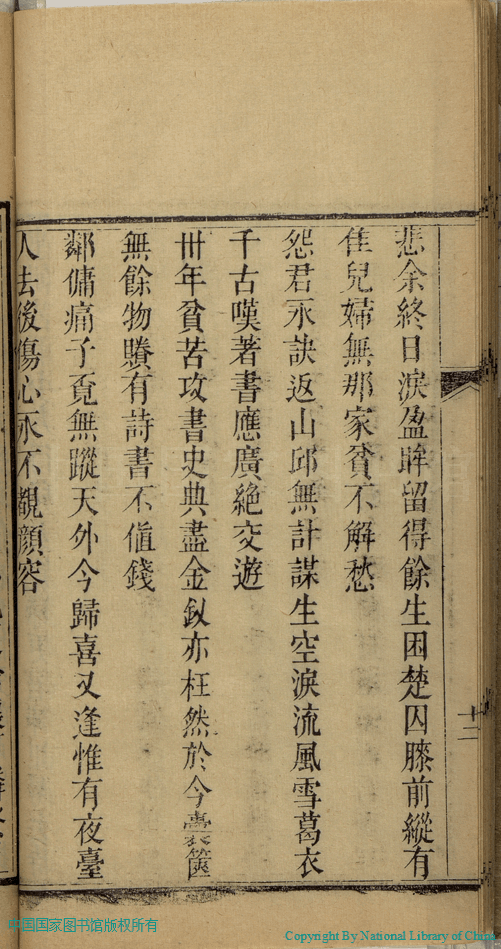 悲余終日淚盈眸留得餘生困楚囚膝前縱有
隹兒婦無那家貧不解愁
怨君永訣返山邱無計謀生空淚流風雪葛衣
千古嘆著書應廣絶交遊
卅年貧苦攻書史典盡金釵亦枉然於今囊篋
無餘物賸有詩書不值錢
鄰傭痛子覔無蹤天外今歸喜又逢惟有夜臺
人去後傷心永不覩顏容
十二
中国国家图书馆版权所有
Copyright By National Library of China